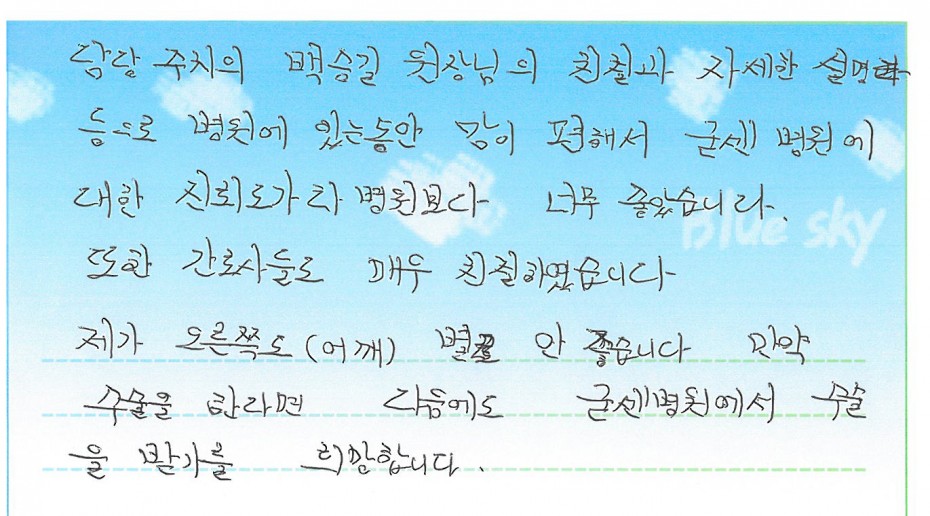 담당 주치의 백승길 원장님의 친절과 자세한 설명
등으로 병원에 있는동안 맘이 편해서 굳센병원에
대한 신뢰도가 타 병원보다 너무 좋았습니다.
Blue sky
또한 간호사들도 매우 친절하였습니다
제가 오른쪽도 (어깨) 별로 안 좋습니다 만약
수술을 한라면 다음에도 굳센병원에서 수술
을 받기를 희망합니다.